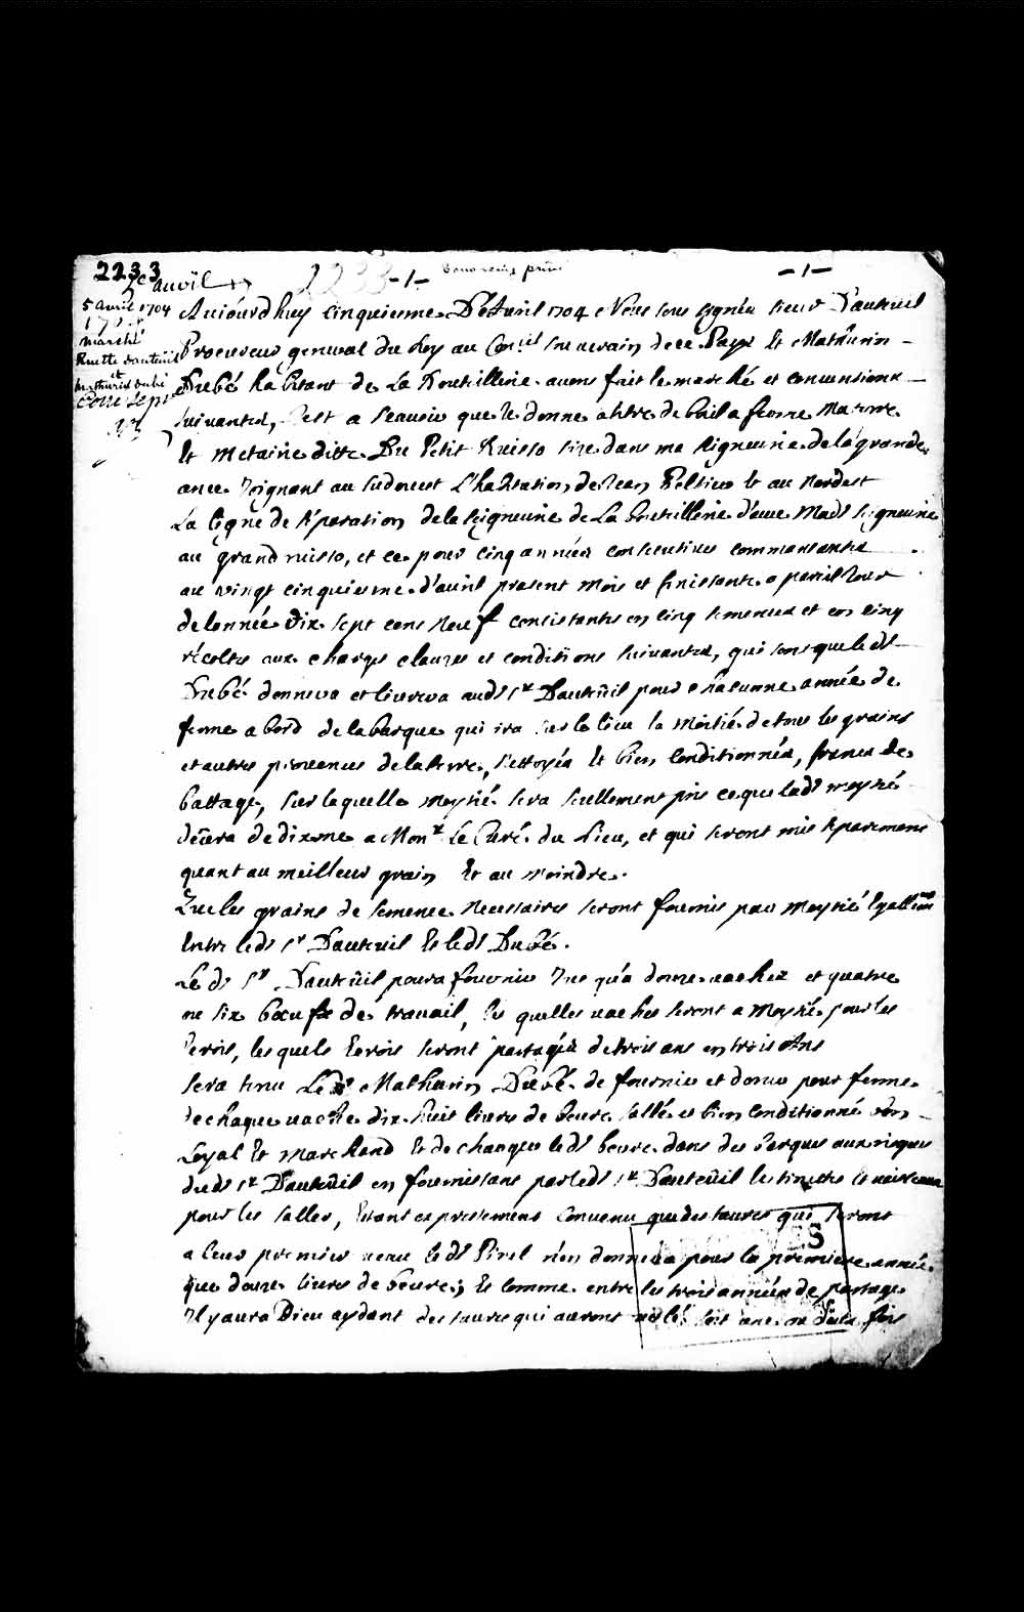 2233
-1-
-1-
5 avril 1704
marché
Ruette dauteüil
et
mathurin dubé
Aujourd huy cinquiesme D'avril 1704 Nous sous signéz sieur Dauteuil
Procureur general du Roy au Con.eil souverain de ce Pays Et Mathurin
Dubé habitant de La Bouteillerie avons fait le marché et conventions
suivantes, C'est a scavoir que Je donne a tiltre de bail a ferme Ma terre
Et Metairie ditte Du Petit Ruisso size dans ma seigneurie de la grande
ance Joignant au sudouest L'habitation de Jean Peltier Et au Nordest
La ligne de separation de la seigneurie de La bouteillerie d'avec Madt seigneurie
au grand ruisso, et ce pour cinq années consecutives commansantes
au vingt cinquiesme d'avril present mois et finissante a pareil Jour
de l'année Dix sept cens Neuf consistantes en cinq semences et en cinq
récoltes aux charges clauzes et conditions suivantes, qui sont que le dt
Dubé donnera et livrera audt Sr Dauteüil pour chacunne année de
ferme a bord de la barque qui ira sur le lieu la Moitié de tous les grains
et autres provenus de la terre, nettoyés Et bien Conditionnés, francs de
battage, sur laquelle moytié sera seullement pris ce que ladt moytié
devra de dixme a Monr Le Curé du Lieu, et qui seront mis separement
quant au meilleur grain Et au moindre.
Que les grains de semence necessaires seront fournis par moytié
Entre ledt Sr Dauteuil Et ledt Dubé.
Le dt Sr Dauteüil poura fournir Jusqu'a douze vaches et quatre
ou six bœufs de travail, les quelles vaches seront a Moytié pour les
, les quels seront partagés de trois ans en trois Ans
sera tenu Ledt Mathurin Dubé de fournir et donner pour ferme
de chaque vache dix huit livres de beure sallé et bien Conditionné bon
Loyal Et Marchand Et de charger ledt beure dans des barques aux risques
dudt Sr Dauteüil en fournissant par ledt Sr Dauteüil les tinettes
pour les saller, Estant expressement Convenu que des taures qui seront
a leur premier veau ledt n'en donnera pour la premiere année
que douze livres de beure; Et Comme entre les trois années de partage
Il y aura Dieu aydant des taures qui auront vêlé soit une ou deux fois